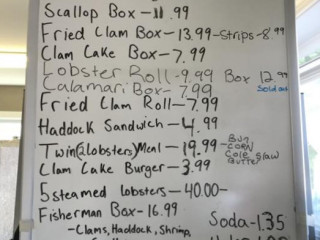 Scallop Box - 11.99
Fried Clam Box - 13.99 - Strips - 8.99
Clam Cake Box - 7.99
Lobster Roll - 9.99 Box 12.99
Calamari Box - 7.99 Sold out
Fried Clam Roll - 7.99
Haddock Sandwich - 4.99
Twin (2 lobsters) Meal - 19.99 - Bun
CORN
Cole Slaw
BUTTER
Clam Cake Burger - 3.99
5 steamed lobsters - 40.00 -
Fisherman Box - 16.99
- Clams, Haddock, Shrimp,
Soda - 1.35